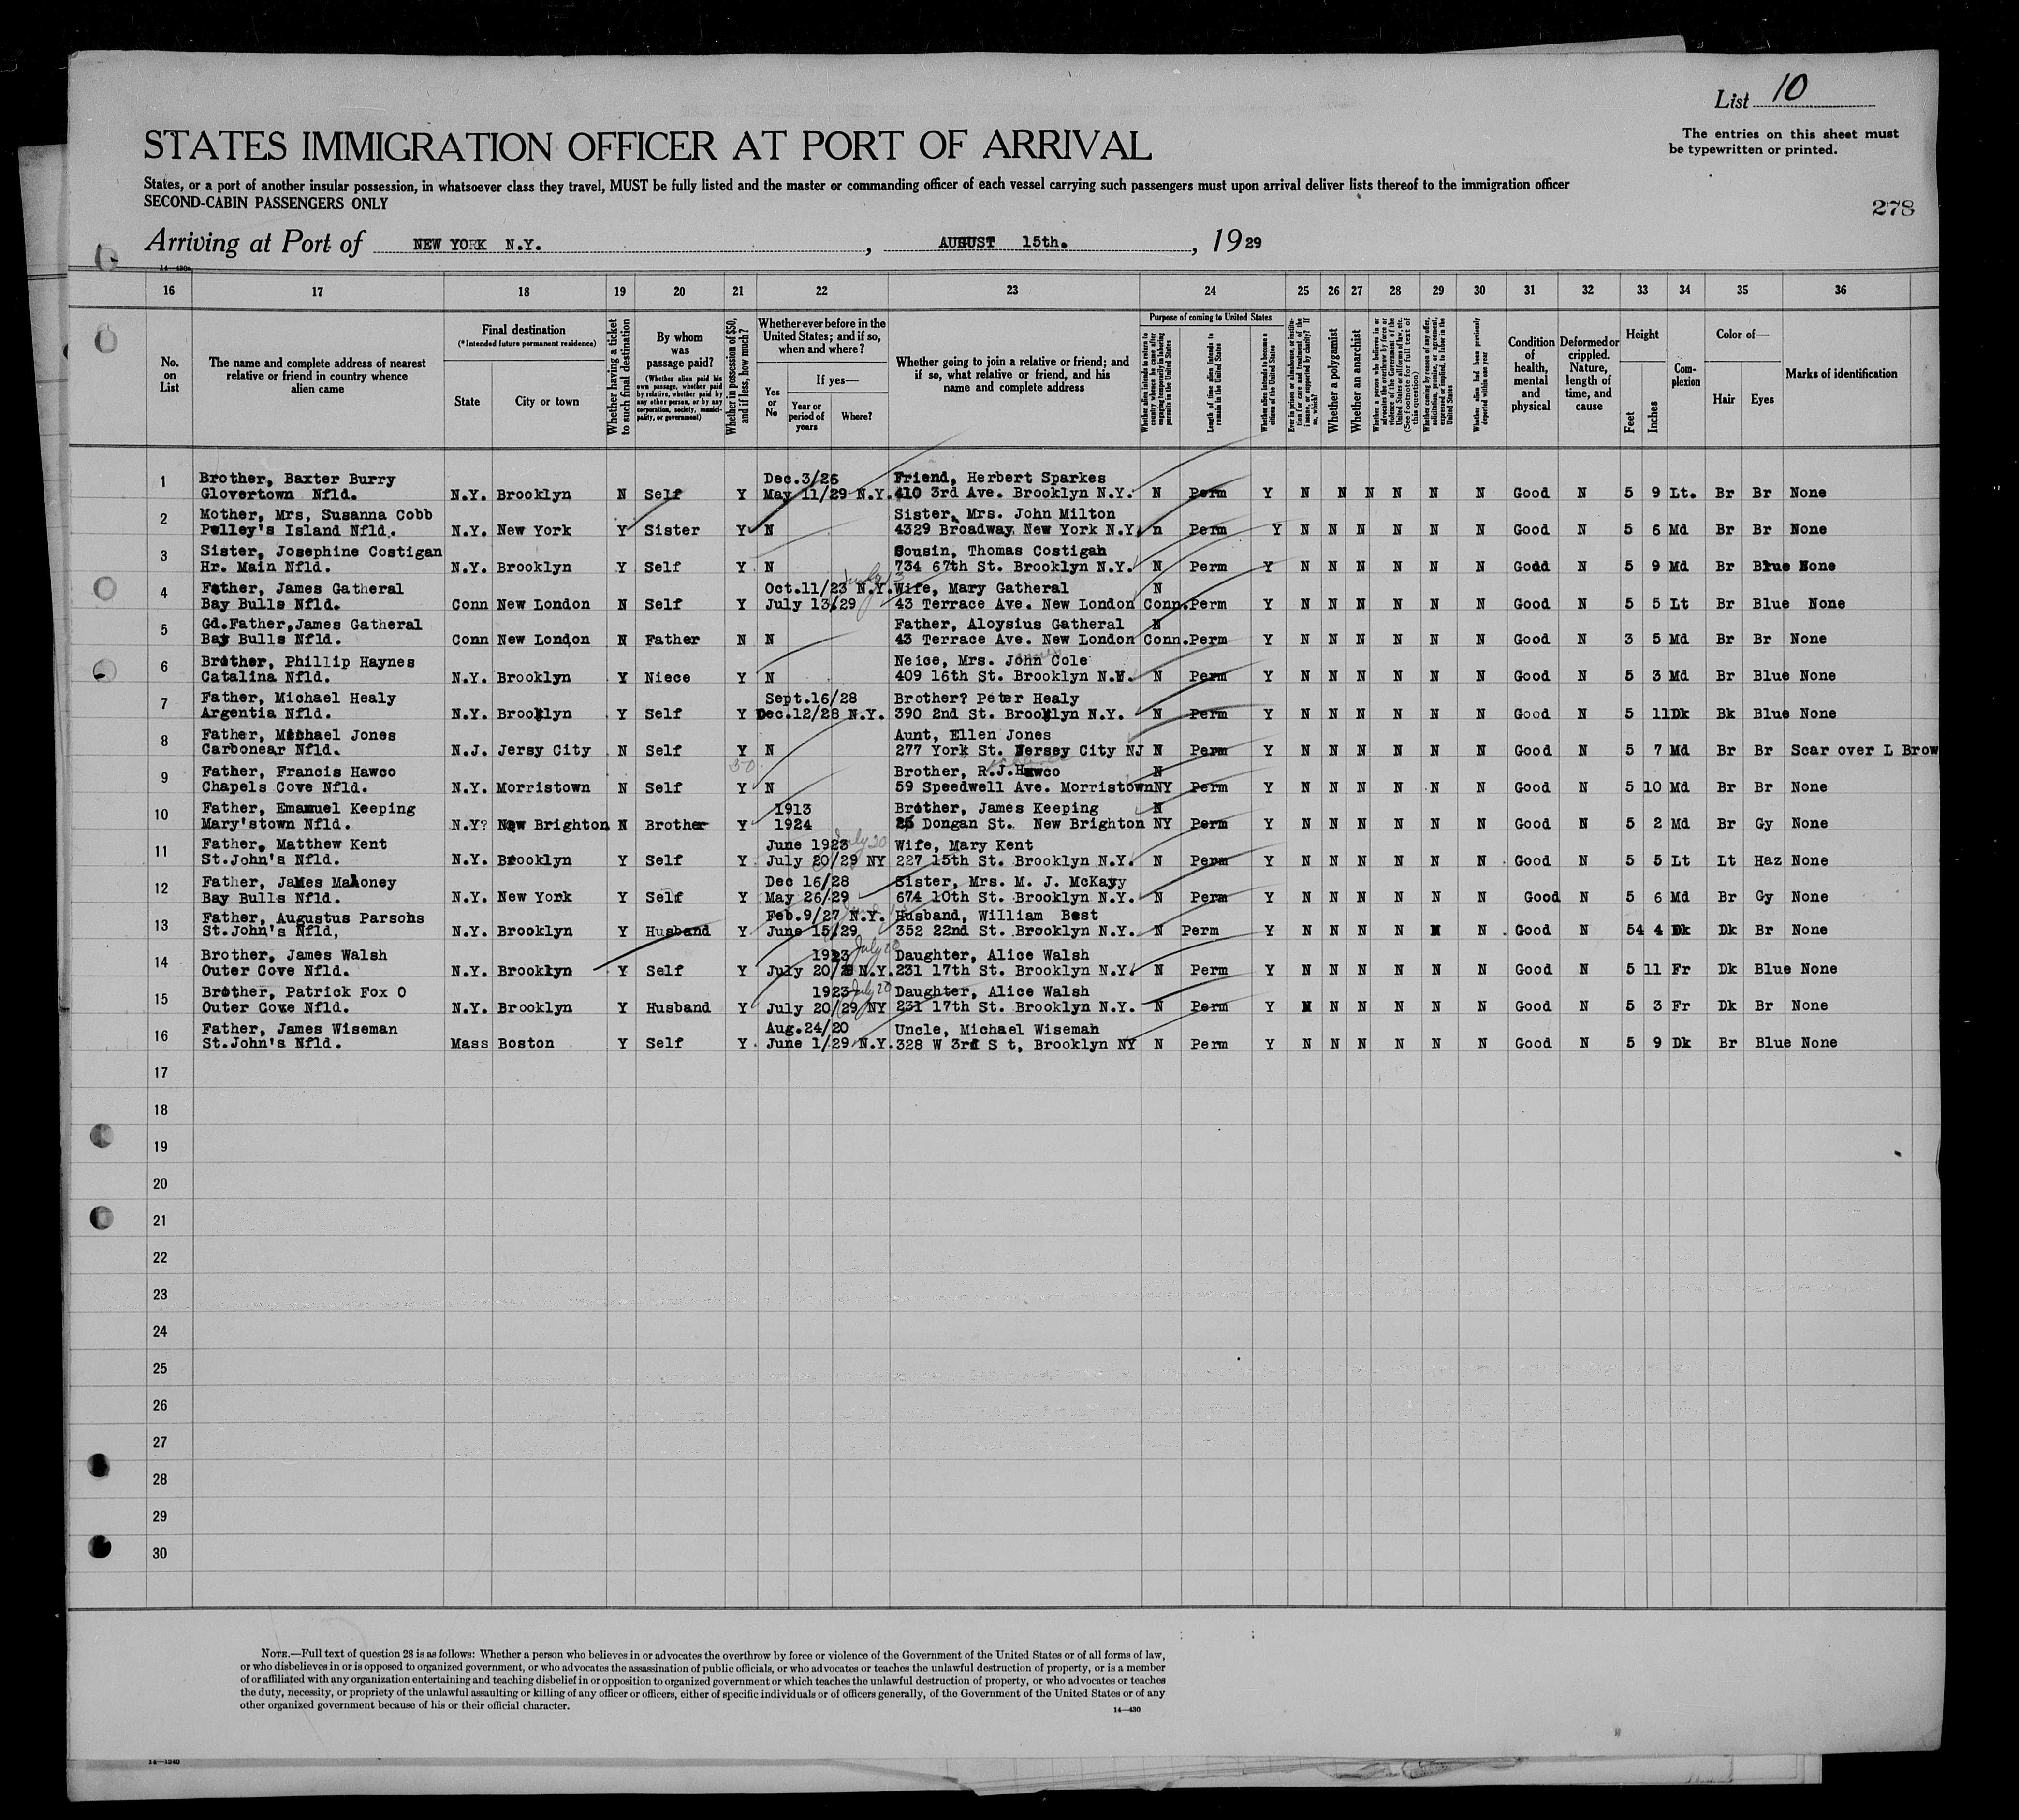 List 10
The entries on this sheet must
be typewritten or printed.
STATES IMMIGRATION OFFICER AT PORT OF ARRIVAL
States, or a port of another insular possession, in whatsoever class they travel, MUST be fully listed and the master or commanding officer of each vessel carrying such passengers must upon arrival deliver lists thereof to the immigration officer
SECOND-CABIN PASSENGERS ONLY
278
Arriving at Port of NEW YORK N.Y. , AUGUST 15th. , 1929
16 17 18 19 20 21 22 23 24 25 26 27 28 29 30 31 32 33 34 35 36
No. on List
The name and complete address of nearest relative or friend in country whence alien came
Final destination
(*Intended future permanent residence)
State
City or town
Whether having a ticket to such final destination
By whom was passage paid?
(Whether alien paid his own passage, whether paid by relative, whether paid by any other person, or by any corporation, society, municipality, or government)
Whether in possession of $50, and if less, how much?
Whether ever before in the United States; and if so, when and where?
Yes or No
If yes—
Year or period of years
Where?
Whether going to join a relative or friend; and if so, what relative or friend, and his name and complete address
Purpose of coming to United States
Whether alien intends to return to country whence he came after engaging temporarily in laboring pursuits in the United States
Length of time alien intends to remain in the United States
Whether alien intends to become a citizen of the United States
Whether a polygamist
Whether an anarchist
Whether alien had been previously deported within one year
Condition of health, mental and physical
Deformed or crippled. Nature, length of time, and cause
Height
Feet
Inches
Complexion
Color of—
Hair
Eyes
Marks of identification
1 Brother, Baxter Burry Dec.3/26 Friend, Herbert Sparkes
Glovertown Nfld. N.Y. Brooklyn N Self Y May 11/29 N.Y. 410 3rd Ave. Brooklyn N.Y. N Perm Y N N N N N N Good N 5 9 Lt. Br Br None
2 Mother, Mrs, Susanna Cobb Sister, Mrs. John Milton
Pelley's Island Nfld. N.Y. New York Y Sister Y N 4329 Broadway New York N.Y. n Perm Y N N N N N N Good N 5 6 Md Br Br None
3 Sister, Josephine Costigan Cousin, Thomas Costigan
Hr. Main Nfld. N.Y. Brooklyn Y Self Y N 734 67th St. Brooklyn N.Y. N Perm Y N N N N N N Godd N 5 9 Md Br Blue None
4 Father, James Gatheral Oct.11/23 N.Y. Wife, Mary Gatheral N
Bay Bulls Nfld. Conn New London N Self Y July 13/29 43 Terrace Ave. New London Conn. Perm Y N N N N N N Good N 5 5 Lt Br Blue None
5 Gd.Father,James Gatheral Father, Aloysius Gatheral N
Bay Bulls Nfld. Conn New London N Father N N 43 Terrace Ave. New London Conn. Perm Y N N N N N N Good N 3 5 Md Br Br None
6 Brother, Phillip Haynes Neice, Mrs. John Cole
Catalina Nfld. N.Y. Brooklyn Y Niece Y N 409 16th St. Brooklyn N.Y. N Perm Y N N N N N N Good N 5 3 Md Br Blue None
7 Father, Michael Healy Sept.16/28 Brother? Peter Healy
Argentia Nfld. N.Y. Brooklyn Y Self Y Dec.12/28 N.Y. 390 2nd St. Brooklyn N.Y. N Perm Y N N N N N N Good N 5 11 Dk Bk Blue None
8 Father, Michael Jones Aunt, Ellen Jones
Carbonear Nfld. N.J. Jersy City N Self Y N 277 York St. Jersey City NJ N Perm Y N N N N N N Good N 5 7 Md Br Br Scar over L Brow
9 Father, Francis Hawco 50 Brother, R.J.Hawco N
Chapels Cove Nfld. N.Y. Morristown N Self Y N 59 Speedwell Ave. Morristown NY Perm Y N N N N N N Good N 5 10 Md Br Br None
10 Father, Emanuel Keeping 1913 Brother, James Keeping N
Mary'stown Nfld. N.Y? New Brighton N Brother Y 1924 25 Dongan St. New Brighton NY Perm Y N N N N N N Good N 5 2 Md Br Gy None
11 Father, Matthew Kent June 1923 July 20 Wife, Mary Kent
St.John's Nfld. N.Y. Brooklyn Y Self Y July 20/29 NY 227 15th St. Brooklyn N.Y. N Perm Y N N N N N N Good N 5 5 Lt Lt Haz None
12 Father, James Mahoney Dec 16/28 Sister, Mrs. M. J. McKayy
Bay Bulls Nfld. N.Y. New York Y Self Y May 26/29 674 10th St. Brooklyn N.Y. N Perm Y N N N N N N Good N 5 6 Md Br Gy None
13 Father, Augustus Parsons Feb.9/27 N.Y. Husband, William Best
St.John's Nfld, N.Y. Brooklyn Y Husband Y June 15/29 352 22nd St. Brooklyn N.Y. N Perm Y N N N N N N Good N 54 4 Dk Dk Br None
14 Brother, James Walsh 1923 July 20 Daughter, Alice Walsh
Outer Cove Nfld. N.Y. Brooklyn Y Self Y July 20/29 N.Y. 231 17th St. Brooklyn N.Y. N Perm Y N N N N N N Good N 5 11 Fr Dk Blue None
15 Brother, Patrick Fox O 1923 July 20 Daughter, Alice Walsh
Outer Cove Nfld. N.Y. Brooklyn Y Husband Y July 20/29 NY 231 17th St. Brooklyn N.Y. N Perm Y N N N N N N Good N 5 3 Fr Dk Br None
16 Father, James Wiseman Aug.24/20 Uncle, Michael Wiseman
St.John's Nfld. Mass Boston Y Self Y June 1/29 N.Y. 328 W 3rd S t, Brooklyn NY N Perm Y N N N N N N Good N 5 9 Dk Br Blue None
17
18
19
20
21
22
23
24
25
26
27
28
29
30
NOTE.—Full text of question 28 is as follows: Whether a person who believes in or advocates the overthrow by force or violence of the Government of the United States or of all forms of law,
or who disbelieves in or is opposed to organized government, or who advocates the assassination of public officials, or who advocates or teaches the unlawful destruction of property, or is a member
of or affiliated with any organization entertaining and teaching disbelief in or opposition to organized government or which teaches the unlawful destruction of property, or who advocates or teaches
the duty, necessity, or propriety of the unlawful assaulting or killing of any officer or officers, either of specific individuals or of officers generally, of the Government of the United States or of any
other organized government because of his or their official character.
14—430
14—1240